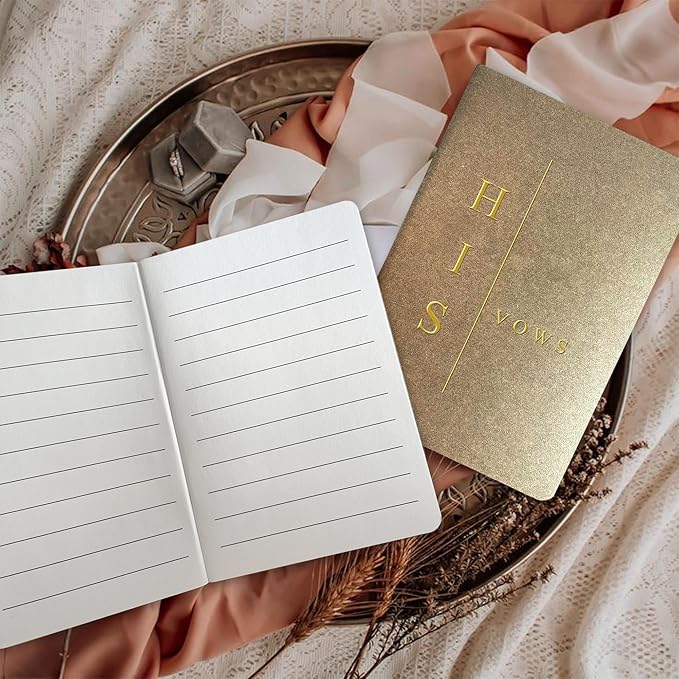 HIS
VOWS